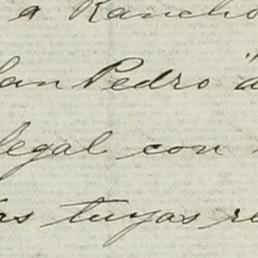 a Rancho
San Pedro "
legal con
tuyas